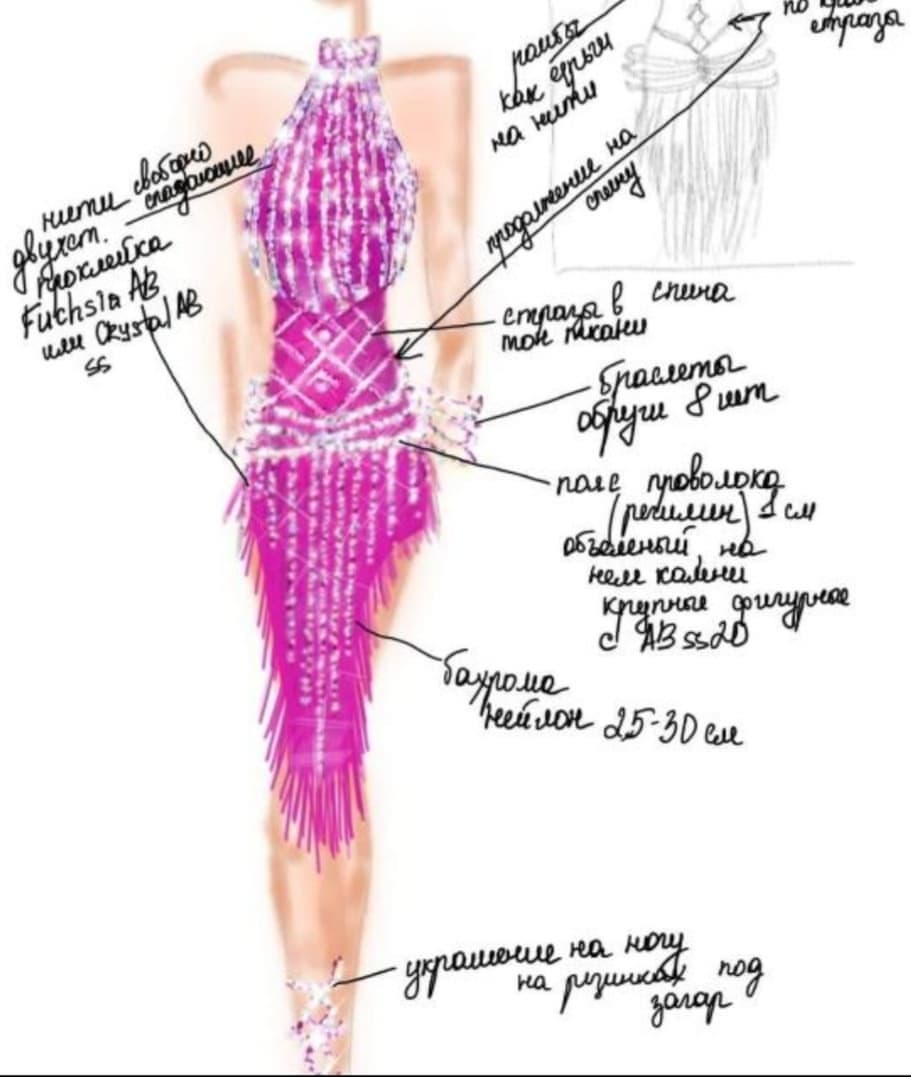 по краю
стразы
ромбы
как серьги
на нити
продолжение на
спину
нити свободно
спадающие
двухст.
проклейка
Fuchsia AB
или Crystal AB
ss
стразы в спина
тон ткани
браслеты
обручи 8 шт
пояс проволока
(регилин) 1 см
объемный, на
нем камни
крупные фигурное
с AB ss20
бахрома
нейлон 25-30 см
украшение на ногу
на резинках под
загар